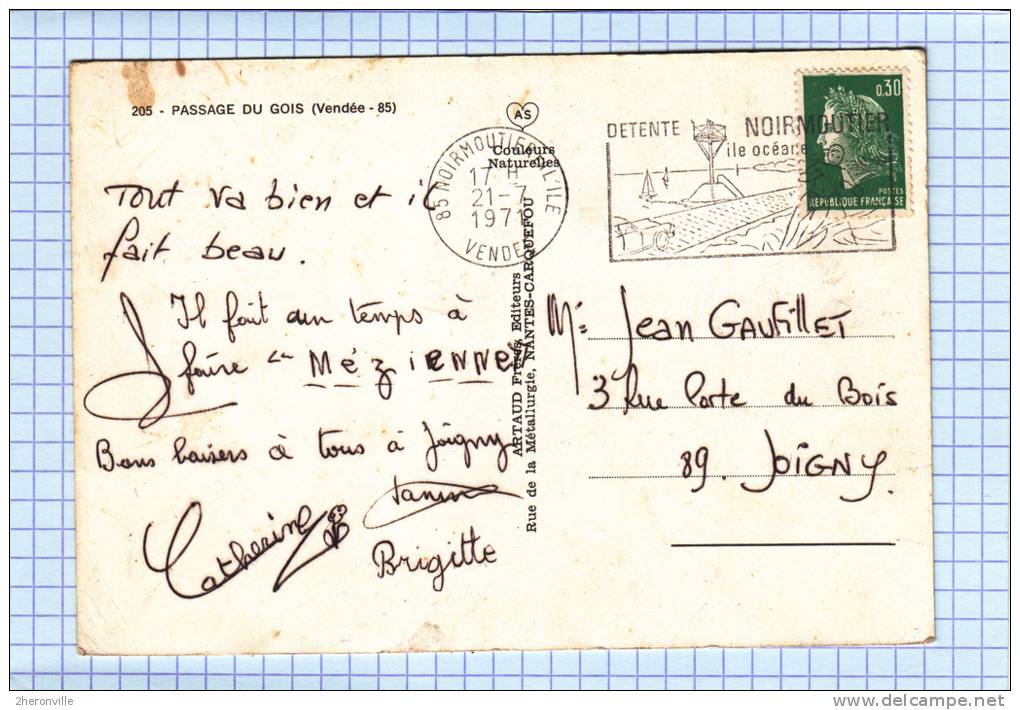 205 - PASSAGE DU GOIS (Vendée - 85)
AS
Couleurs
Naturelles
85 NOIRMOUTIER-L'ILE
17 H
21-7
1971
VENDEE
DETENTE NOIRMOUTIER
ile océane
0,30
POSTES
REPUBLIQUE FRANÇAISE
Tout va bien et il
fait beau.
Il fait un temps à
faire la Mézienne
Bons baisers à tous à Joigny
Catherine
Brigitte
ARTAUD Frères, Editeurs
Rue de la Métallurgie, NANTES-CARQUEFOU
Mr Jean GAUFILLET
3 Rue Porte du Bois
89. JOIGNY.
2heronville
delcampe.net